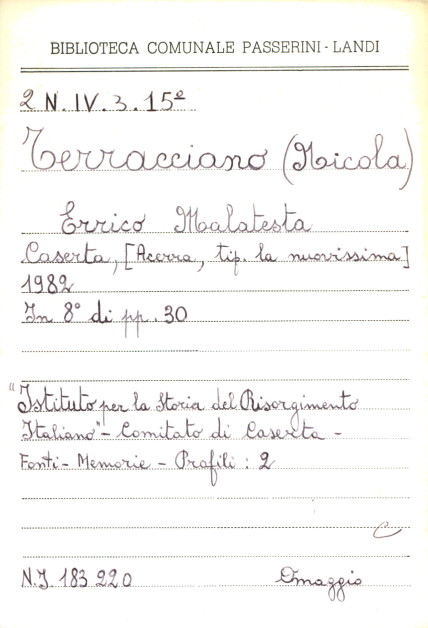 BIBLIOTECA COMUNALE PASSERINI - LANDI
2 N. IV. 3. 15º
Terracciano (Nicola)
Errico Malatesta
Caserta, [Acerra, tip. la nuovissima]
1982
In 8° di pp. 30
"Istituto per la Storia del Risorgimento
Italiano" - Comitato di Caserta -
Fonti - Memorie - Profili : 2
C
N.I. 183 220 Omaggio